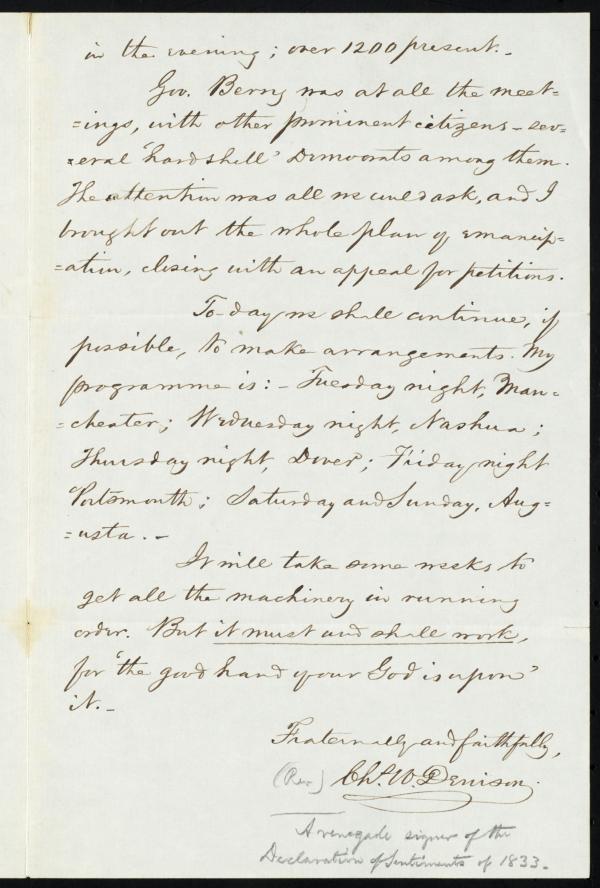 in the evening; over 1200 present. -
Gov. Berry was at all the meet=
=ings, with other prominent citizens - sev=
=eral 'hard shell' Democrats among them.
The attention was all we could ask, and I
brought out the whole plan of emancip=
=ation, closing with an appeal for petitions.
To-day we shall continue, if
possible, to make arrangements. My
programme is: - Tuesday night, Man=
=chester; Wednesday night, Nashua;
Thursday night, Dover; Friday night
Portsmouth; Saturday and Sunday, Aug=
=usta. -
It will take some weeks to
get all the machinery in running
order. But it must and shall work,
for 'the good hand of our God is upon'
it. -
Fraternally and faithfully,
(Rev) Chs. W. Denison.
A renegade signer of the
Declaration of Sentiments of 1833.